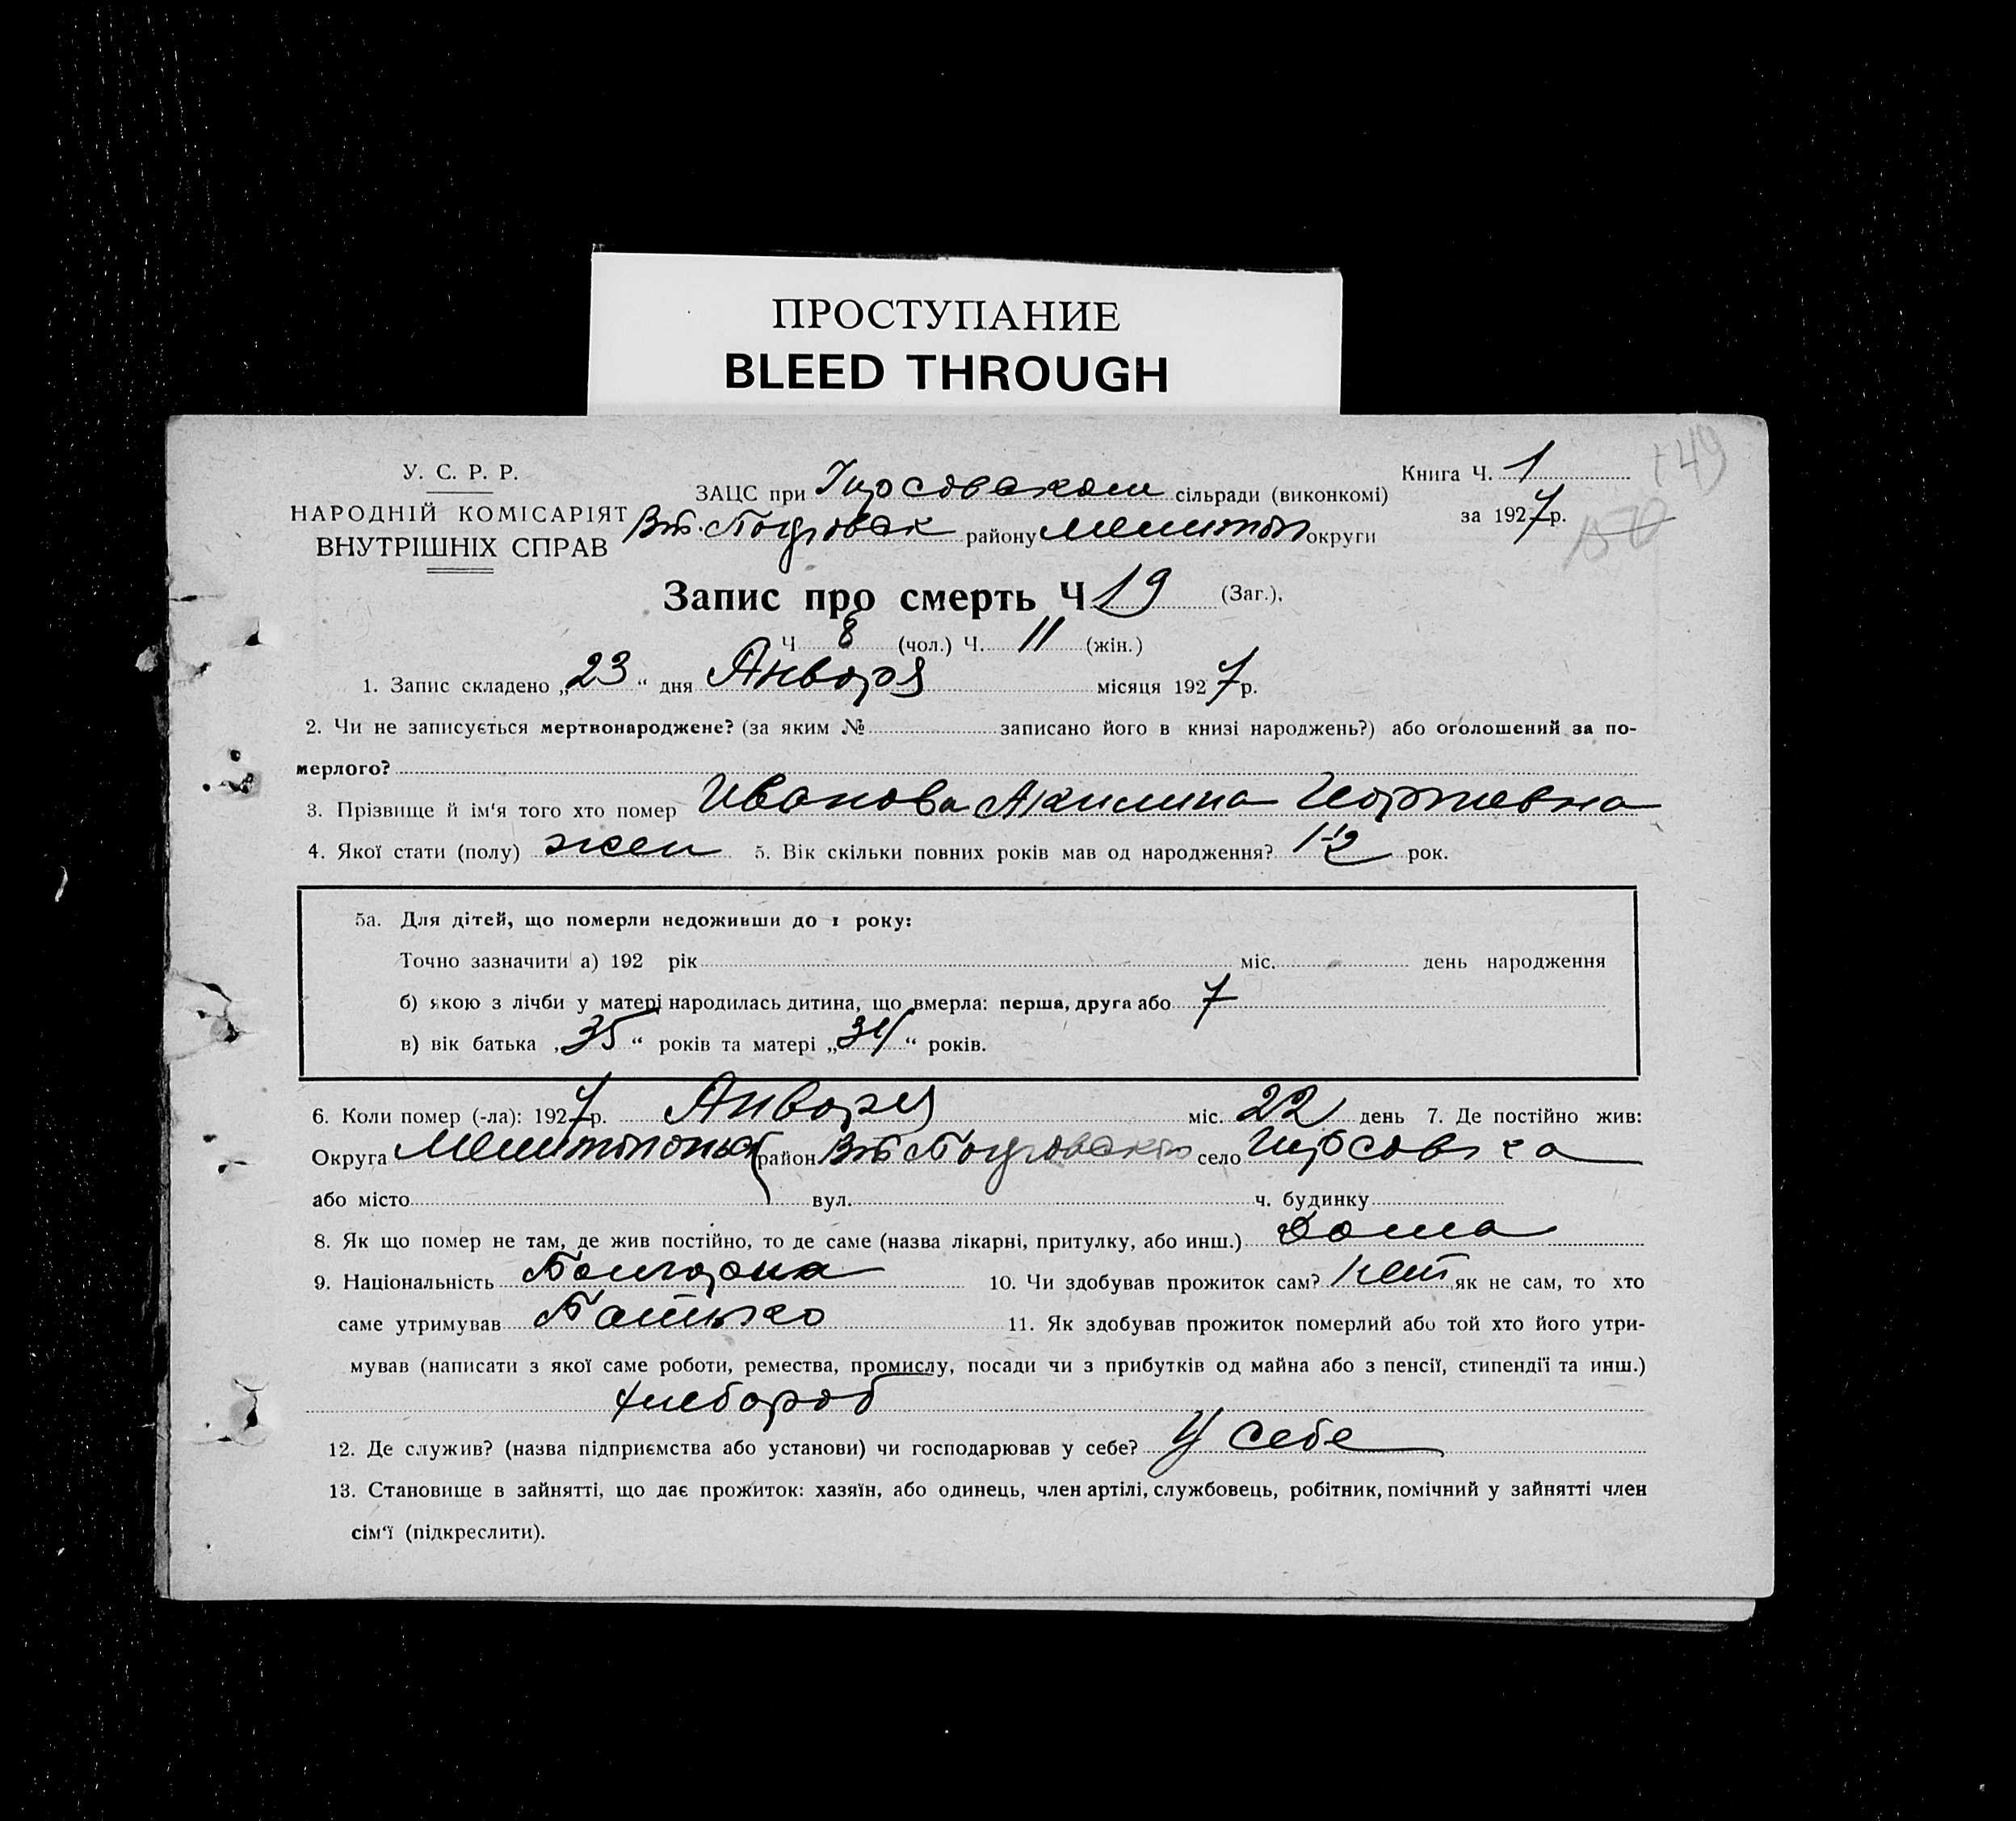 ПРОСТУПАНИЕ
BLEED THROUGH
У. С. Р. Р.
НАРОДНІЙ КОМІСАРІЯТ
ВНУТРІШНІХ СПРАВ
ЗАЦС при сільради (виконкомі)
району округи
Книга Ч. 1
за 1927 р.
149
150
Запис про смерть Ч 19 (Заг.),
Ч 8 (чол.) Ч. 11 (жін.)
1. Запис складено „23“ дня Января місяця 1927 р.
2. Чи не записується мертвонароджене? (за яким № записано його в книзі народжень?) або оголошений за по-
мерлого?
3. Прізвище й ім'я того хто помер Иванова Акилина
4. Якої стати (полу) жен 5. Вік скільки повних років мав од народження? рок.
5а. Для дітей, що померли недоживши до 1 року:
Точно зазначити а) 192 рік міс. день народження
б) якою з лічби у матері народилась дитина, що вмерла: перша, друга або 7
в) вік батька „35“ років та матері „34“ років.
6. Коли помер (-ла): 1927 р. Января міс. 22 день 7. Де постійно жив:
Округа район село
або місто вул. ч. будинку
8. Як що помер не там, де жив постійно, то де саме (назва лікарні, притулку, або инш.) Дома
9. Національність Болгарка 10. Чи здобував прожиток сам? Нет як не сам, то хто
саме утримував Батько 11. Як здобував прожиток померлий або той хто його утри-
мував (написати з якої саме роботи, ремества, промислу, посади чи з прибутків од майна або з пенсії, стипендії та инш.)
хлебороб
12. Де служив? (назва підприємства або установи) чи господарював у себе? У себе
13. Становище в зайнятті, що дає прожиток: хазяїн, або одинець, член артілі, службовець, робітник, помічний у зайнятті член
сім'ї (підкреслити).